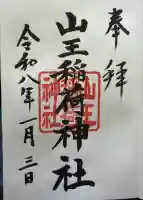 奉拝
山王稲荷神社
令和八年一月三日